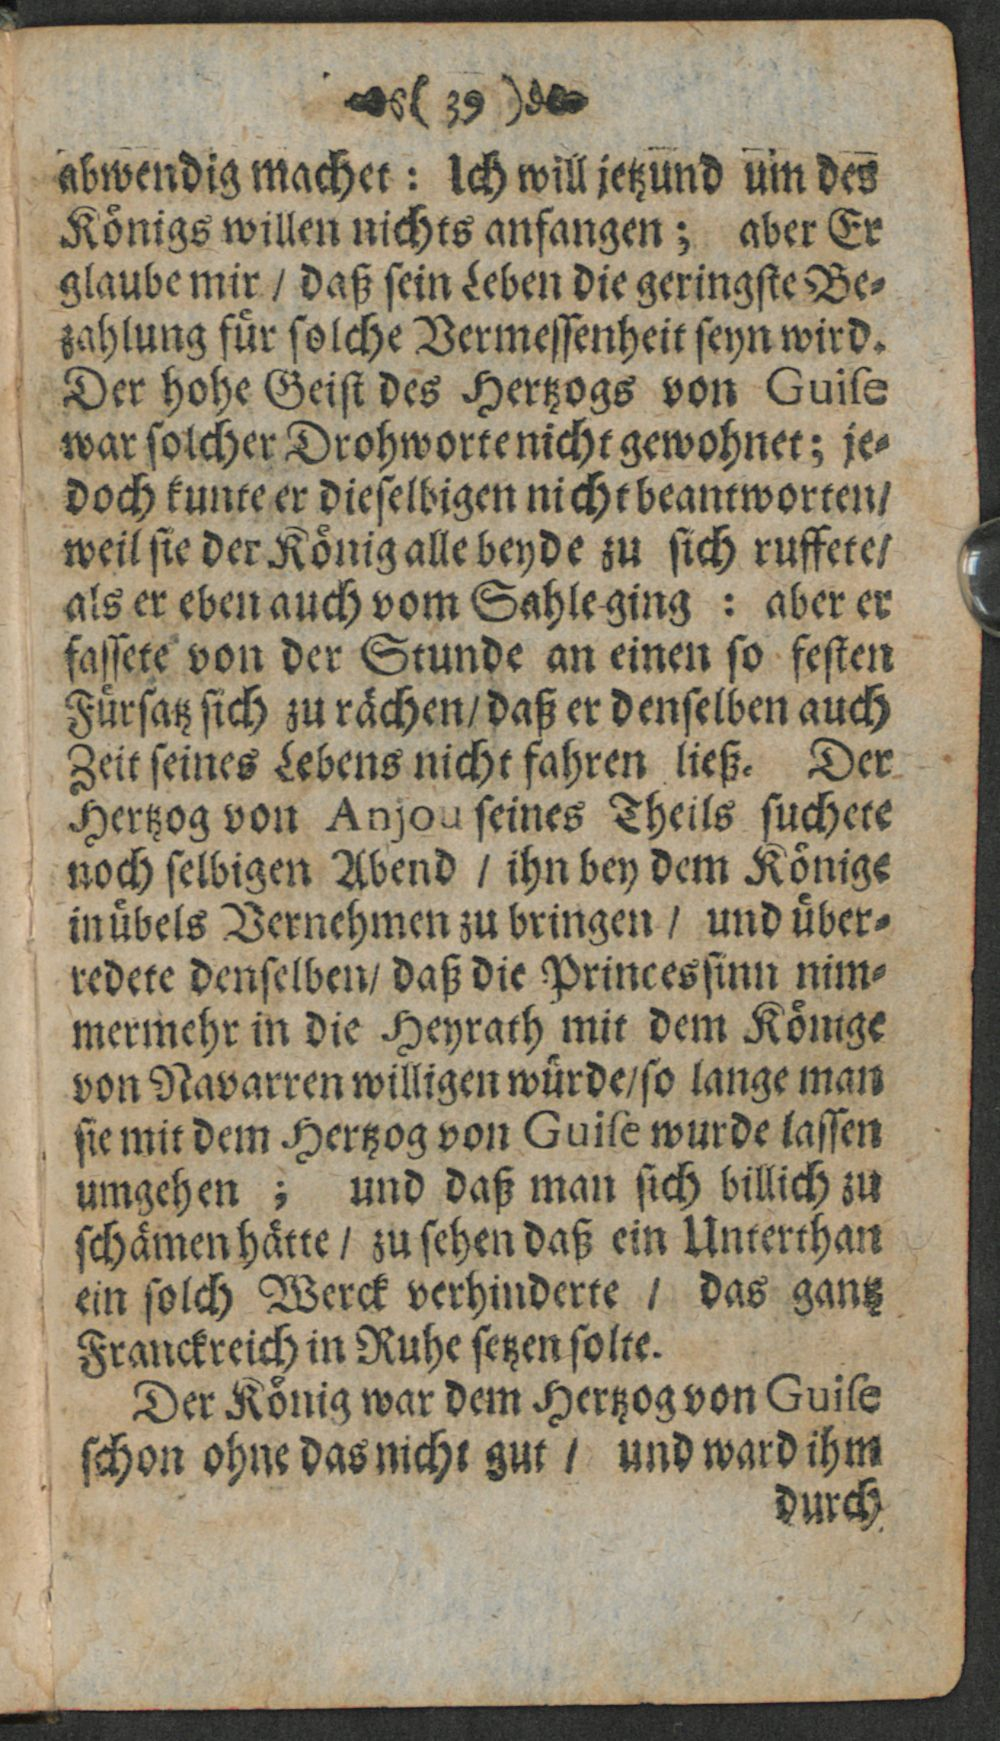 ( 39 )
abwendig machet: Ich will jetzund üm des
Königs willen nichts anfangen; aber Er
glaube mir / daß sein Leben die geringste Be-
zahlung für solche Vermessenheit seyn wird.
Der hohe Geist des Hertzogs von Guise
war solcher Drohworte nicht gewohnet; je-
doch kunte er dieselbigen nicht beantworten/
weil sie der König alle beyde zu sich ruffete/
als er eben auch vom Sahle ging : aber er
fassete von der Stunde an einen so festen
Fürsatz sich zu rächen/ daß er denselben auch
Zeit seines Lebens nicht fahren ließ. Der
Hertzog von Anjou seines Theils suchete
noch selbigen Abend / ihn bey dem Könige
in übels Vernehmen zu bringen / und über-
redete denselben/ daß die Princessinn nim-
mermehr in die Heyrath mit dem Könige
von Navarren willigen würde/ so lange man
sie mit dem Hertzog von Guise wurde lassen
umgehen ; und daß man sich billich zu
schämen hätte / zu sehen daß ein Unterthan
ein solch Werck verhinderte / das gantz
Franckreich in Ruhe setzen solte.
Der König war dem Hertzog von Guise
schon ohne das nicht gut / und ward ihm
durch